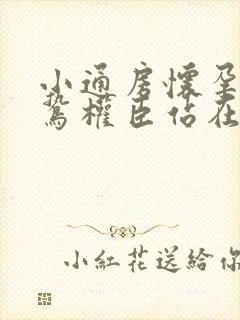 小通房懷孕
鷙權臣佔在
小紅花送給你